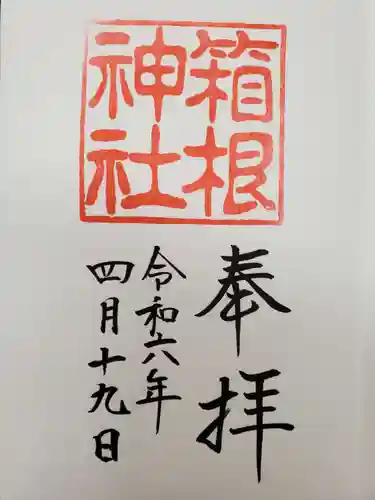 箱根
神社
奉拝
令和六年
四月十九日